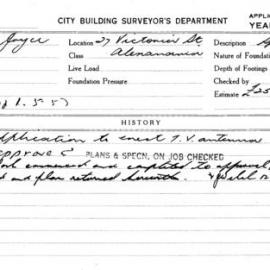 CITY BUILDING SURVEYOR'S DEPARTMENT
APPLIC
YEAR
Joyce Location 27 Victoria St Description
Class Alexandria Nature of Foundation
Live Load Depth of Footings
Foundation Pressure Checked by
Estimate £25
HISTORY
application to erect T.V. antenna
approved PLANS & SPECN. ON JOB CHECKED
Work commenced and completed to approval
and plan returned herewith